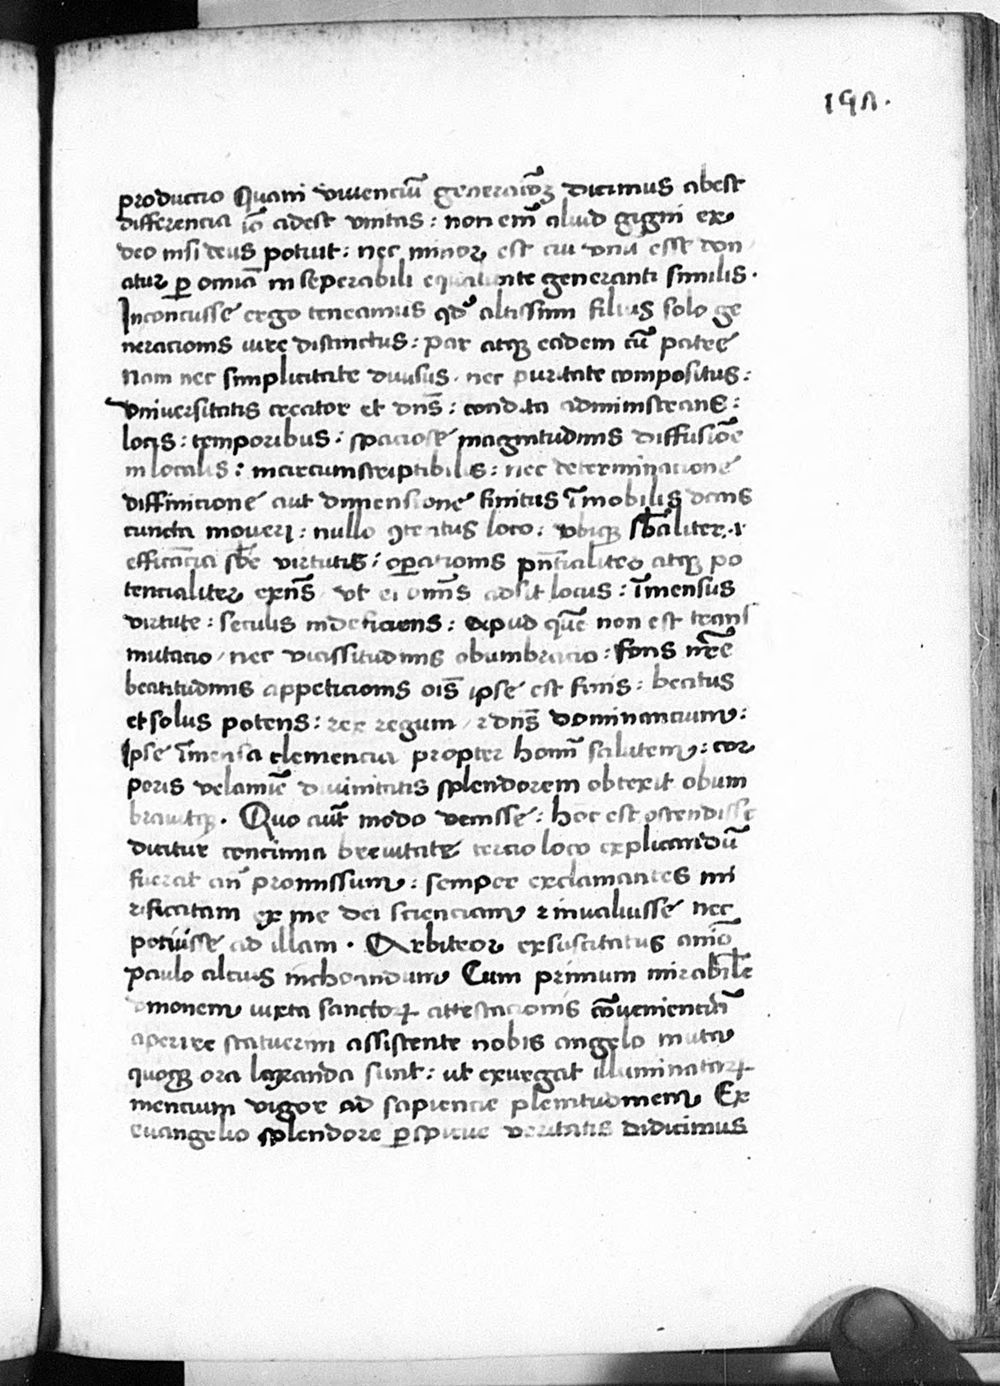 197.
productio Quam viuenciū generaōꝫ dicimus abest
differencia iō adest vnitas : non em̄ aliud gigni ex
deo nisi deus potuit : nec minor est cui vnū esse don
atur ꝑ omīa inseperabili equalitate generanti similis .
Inconcusse ergo teneamus qd' altissimi filius solo ge
neracionis iure distinctus : par atqꝫ eadem cū patre
Nam nec simplicitate diuisus . nec puritate compositus :
vniuersitatis creator et dn̄s : condita administrans :
locis : temporibus : spaciose magnitudinis diffusiōe
inlocalis : incircumscriptibilis : nec determinacione
diffinicione aut dimensione finitus īmobilis dans
cuncta moueri : nullo ꝯtentus loco : vbiqꝫ sb̄aliter ⁊
efficācia sb̄e virtutis : oꝑationis pn̄tialiter atqꝫ po
tencialiter exn̄s vt ei omīs adsit locus : īmensus
virtute : seculis indeficiens : Apud quē non est trans
mutacio / nec vicissitudinis obumbracio : fons nr̄e
beatitudinis appeticionis oīs ipse est finis : beatus
et solus potens : rex regum / ⁊ dn̄s dominancium :
Ipse īmensa clemencia propter homī salutem : cor
poris velamīe diuinitatis splendorem obtexit obum
brauitqꝫ . Quo aūt modo venisse : hoc est ostendisse
dicitur concinna breuitate tercio loco explicandū
fuerat an̄ promissum : semper exclamantes mi
rificatam ex me dei scienciam ⁊ inualuisse nec
potuisse ad illam . Arbitror exsuscitatus anīo
paulo altius inchoandum Cum primum mirabile
domonem iuxta sanctoꝝ attestacionis cōuenienciā
aperire statuerim assistente nobis angelo muta
quoqꝫ ora laxanda sunt : ut exurgat illuminatoꝝ
mencium vigor ad sapiencie plenitudinem Ex
euangelio splendore ꝑspicue veritatis didicimus